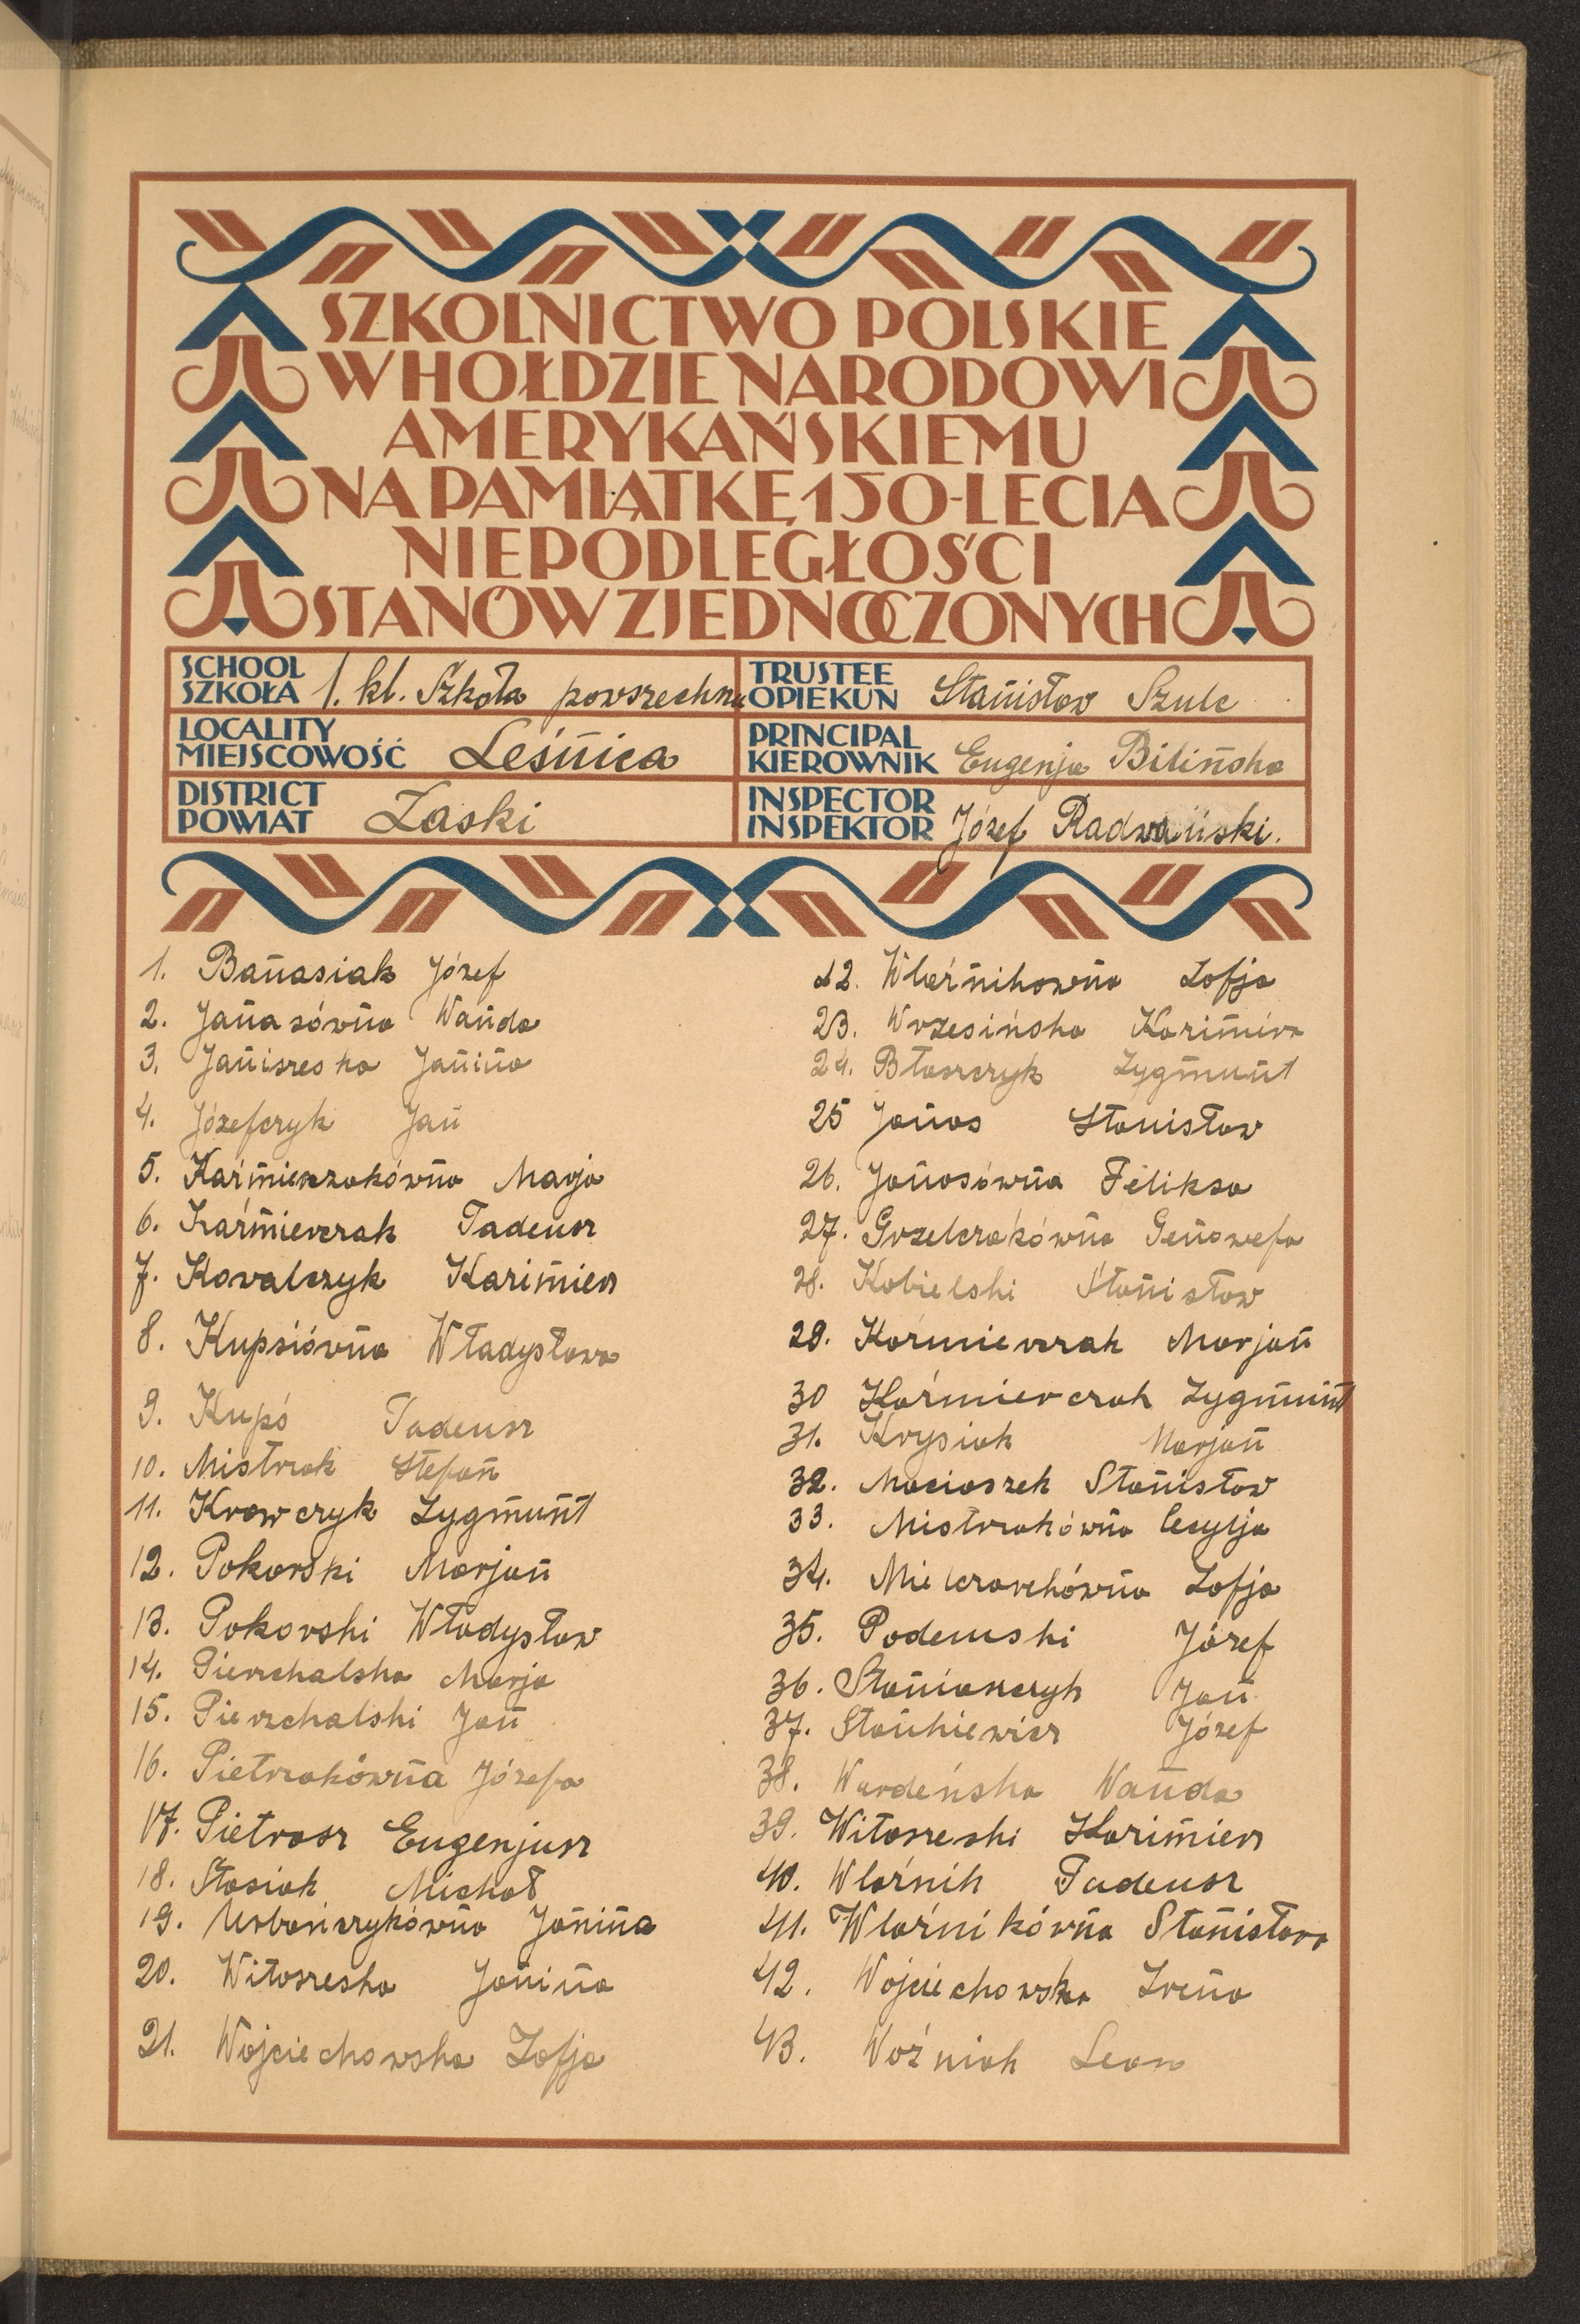 SZKOLNICTWO POLSKIE
W HOŁDZIE NARODOWI
AMERYKAŃSKIEMU
NA PAMIĄTKĘ 150-LECIA
NIEPODLEGŁOŚCI
STANÓW ZJEDNOCZONYCH
SCHOOL
SZKOŁA 1. kl. Szkoła powszechna
TRUSTEE
OPIEKUN Stanisław Szulc
LOCALITY
MIEJSCOWOŚĆ Leśnica
PRINCIPAL
KIEROWNIK Eugenja Bilińska
DISTRICT
POWIAT Łaski
INSPECTOR
INSPEKTOR Józef Radwański.
1. Banasiak Józef
2. Janasówna Wanda
3. Janiszeska Janina
4. Józefczyk Jan
5. Kaźmierzakówna Marja
6. Kaźmierczak Tadeusz
7. Kowalczyk Kazimierz
8. Kupsiówna Władysława
9. Kupś Tadeusz
10. Mistrzak Stefan
11. Krawczyk Zygmunt
12. Pokorski Marjan
13. Pokorski Władysław
14. Pierzchalska Marja
15. Pierzchalski Jan
16. Pietrzakówna Józefa
17. Pietrasz Eugenjusz
18. Stasiak Michał
19. Urbańczykówna Janina
20. Witoszeska Janina
21. Wojciechowska Zofja
22. Wlaźnikowna Zofja
23. Wrzesińska Kazimiera
24. Błaszczyk Zygmunt
25 Janas Stanisław
26. Janasówna Feliksa
27. Grzelczakówna Genowefa
28. Kobielski Stanisław
29. Kaźmierczak Marjan
30 Kaźmierczak Zygmunt
31. Krysiak Marjan
32. Maciaszek Stanisław
33. Mistrzakówna Cecylja
34. Mielczarekówna Zofja
35. Podemski Józef
36. Staniaszczyk Jan
37. Stankiewicz Józef
38. Wardeńska Wanda
39. Witoszeski Kazimierz
40. Wlaźnik Tadeusz
41. Wlaźnikówna Stanisława
42. Wojciechowska Irena
43. Woźniak Leon